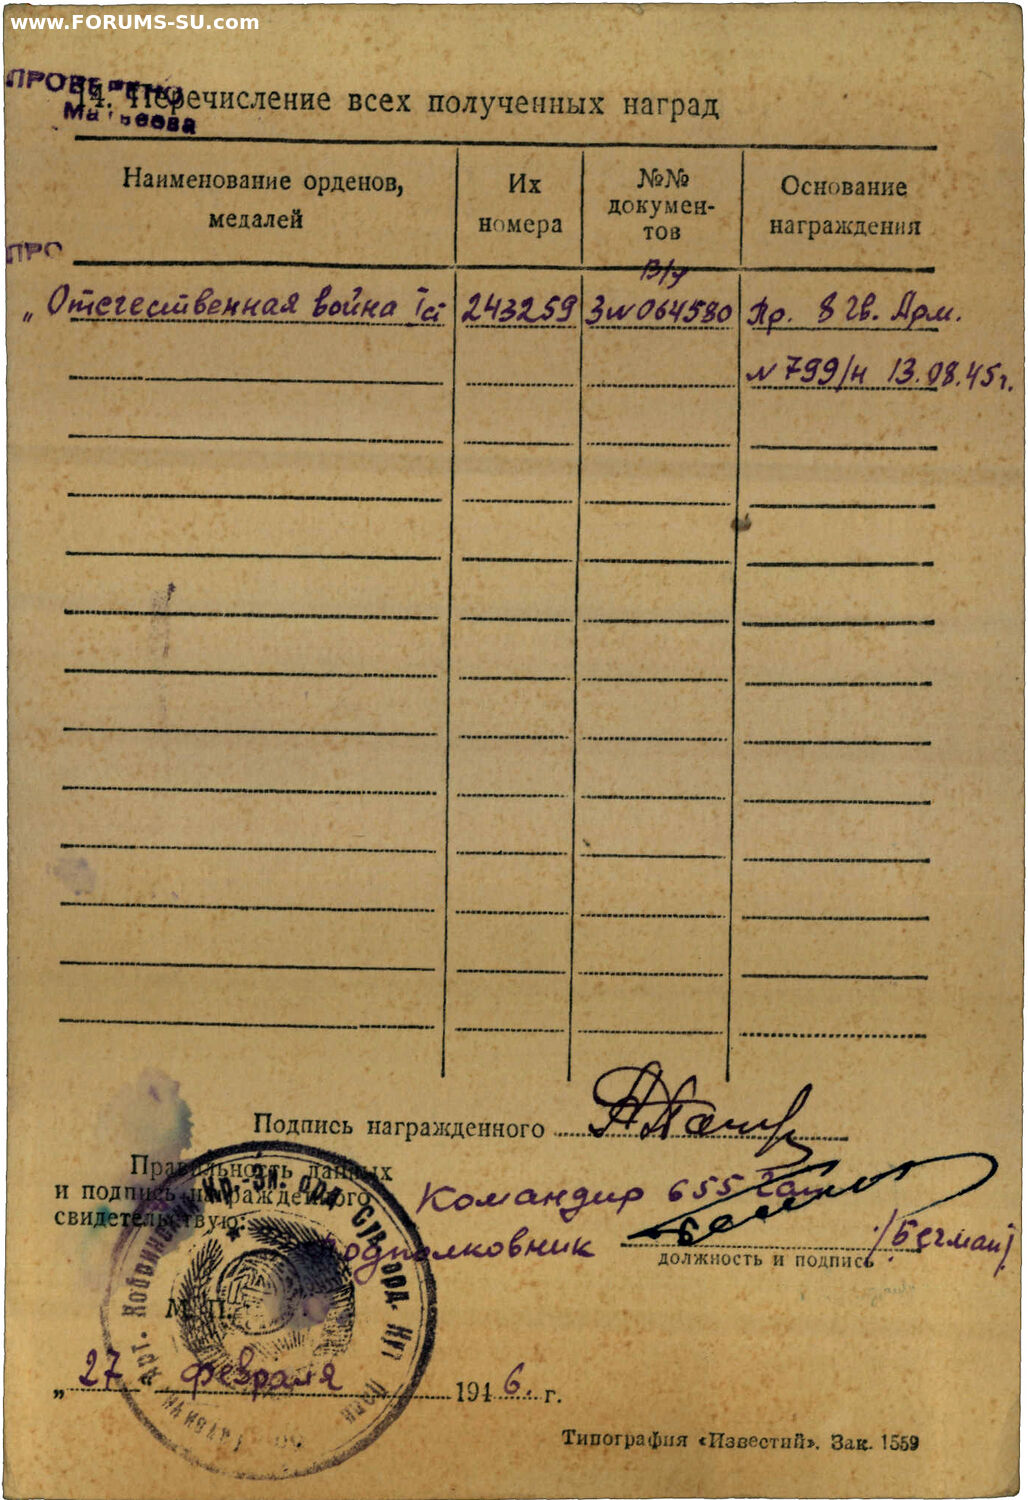 www.FORUMS-SU.com
ПРОВЕРЕНО
14. Перечисление всех полученных наград
Матвеева
Наименование орденов, медалей
Их номера
№№ докумен-тов
Основание награждения
ПРО
В/у
„Отечественная война I ст 243259 З №064580 Пр. 8 Гв. Арм.
№ 799/н 13.08.45г.
Подпись награжденного
Правильность данных
и подпись награжденного
свидетельствую:
Командир 655
Подполковник
/Бегман/
должность и подпись
М. П.
Арт. Кобринский Кр.-Зн. орд. Сув. орд. Кут. полк
„27 февраля 1946. г.
Типография «Известий». Зак. 1559